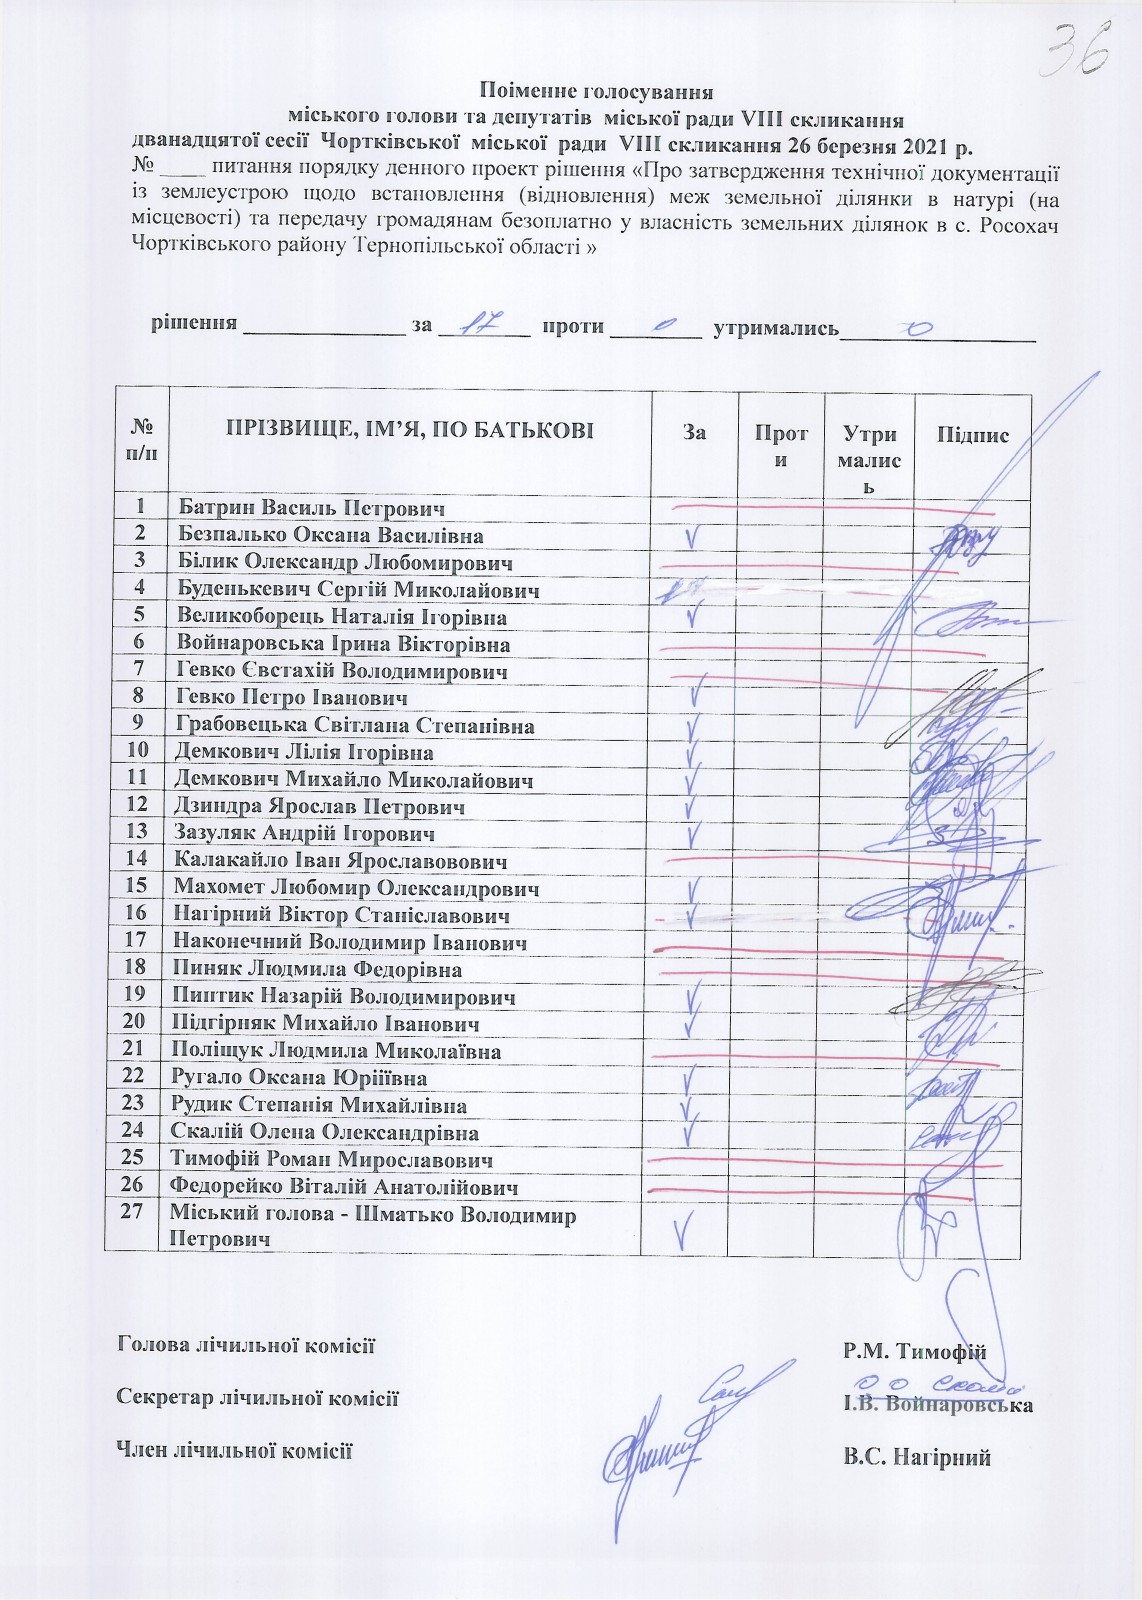 36
Поіменне голосування
міського голови та депутатів міської ради VIII скликання
дванадцятої сесії Чортківської міської ради VIII скликання 26 березня 2021 р.
№ ____ питання порядку денного проект рішення «Про затвердження технічної документації
із землеустрою щодо встановлення (відновлення) меж земельної ділянки в натурі (на
місцевості) та передачу громадянам безоплатно у власність земельних ділянок в с. Росохач
Чортківського району Тернопільської області »
рішення ______________ за 17 проти 0 утримались 0
№ п/п ПРІЗВИЩЕ, ІМ’Я, ПО БАТЬКОВІ За Проти Утримались Підпис
1 Батрин Василь Петрович
2 Безпалько Оксана Василівна
3 Білик Олександр Любомирович
4 Буденькевич Сергій Миколайович
5 Великоборець Наталія Ігорівна
6 Войнаровська Ірина Вікторівна
7 Гевко Євстахій Володимирович
8 Гевко Петро Іванович
9 Грабовецька Світлана Степанівна
10 Демкович Лілія Ігорівна
11 Демкович Михайло Миколайович
12 Дзиндра Ярослав Петрович
13 Зазуляк Андрій Ігорович
14 Калакайло Іван Ярославовович
15 Махомет Любомир Олександрович
16 Нагірний Віктор Станіславович
17 Наконечний Володимир Іванович
18 Пиняк Людмила Федорівна
19 Пиптик Назарій Володимирович
20 Підгірняк Михайло Іванович
21 Поліщук Людмила Миколаївна
22 Ругало Оксана Юріїївна
23 Рудик Степанія Михайлівна
24 Скалій Олена Олександрівна
25 Тимофій Роман Мирославович
26 Федорейко Віталій Анатолійович
27 Міський голова - Шматько Володимир
Петрович
Голова лічильної комісії Р.М. Тимофій
Секретар лічильної комісії І.В. Войнаровська
Член лічильної комісії В.С. Нагірний